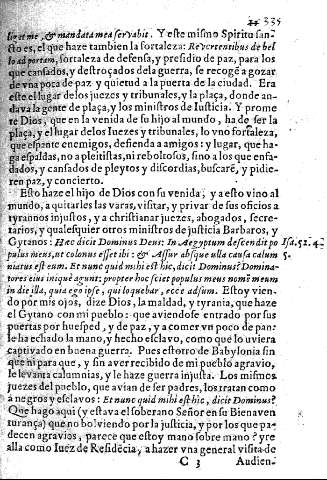 335
lue et me, & mandata mea seruabit. Y este mismo Spiritu san-
sto es, el que haze tambien la fortaleza: Reuertentibus de bel
lo ad portam, fortaleza de defensa, y presidio de paz, para los
que cansados, y destroçados dela guerra, se recogē a gozar
de vna poca de paz y quietud a la puerta de la ciudad. Era
este el lugar de los juezes y tribunales, y la plaça, donde an-
daua la gente de plaça, y los ministros de Iusticia. Y prome
te Dios, que en la venida de su hijo al mundo, ha de ser la
plaça, y el lugar delos Iuezes y tribunales, lo vno forsaleza,
que espante enemigos, defienda a amigos: y lugar, que ha-
ga espaldas, no a pleitistas, ni reboltosos, sino a los que enfa-
dados, y cansados de pleytos y discordias, buscarē, y pidie-
ren paz, y concierto.
Esto haze el hijo de Dios con su venida, y a esto vino al
mundo, a quitarles las varas, visitar, y priuar de sus oficios a
tyrannos injustos, y a christianar juezes, abogados, secre-
tarios, y qualesquier otros ministros de justicia Barbaros, y
Gytanos: Hæc dicit Dominus Deus: In Aegyptum descendit po Isa. 52. 4.
pulus meus, ut colonus esset ibi: & Assur absque ulla causa calum 5.
niatus est eum. Et nunc quid mihi est hic, dicit Dominus? Domina-
tores eius iniquè agunt: propter hoc sciet populus meus nomē meum
in die illa, quia ego ipse, qui loquebar, ecce adsum. Estoy vien-
do por mis ojos, dize Dios, la maldad, y tyrania, que haze
el Gytano con mi pueblo: que auiendose entrado por sus
puertas por huesped, y de paz, y a comer vn poco de pan:
le ha echado la mano, y hecho esclauo, como que lo uviera
captiuado en buena guerra. Pues estotro de Babylonia sin
que ni para que, y sin auer recibido de mi pueblo agrauio,
le leuanta calumnias, y le haze guerra injusta. Los mismos
juezes del pueblo, que auian de ser padres, los tratan como
a negros y esclauos: Et nunc quid mihi est hic, dicit Dominus?
Que hago aqui (y estaua el soberano Señor en su Bienauen
turança) que no boluiendo por la justicia, y por los que pa-
decen agrauios, parece que estoy mano sobre mano? yre
alla como Iuez de Residēcia, a hazer vna general visita de
C 3 Audien-